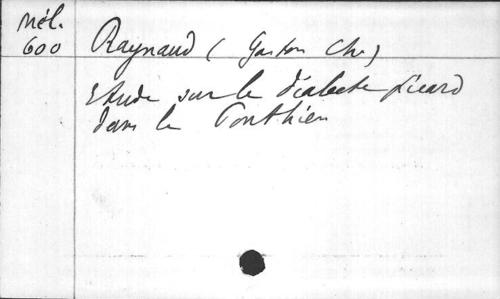 Mél.
600
Raynaud ( Gaston Ch.)
Etude sur le dialecte picard
dans le Ponthieu